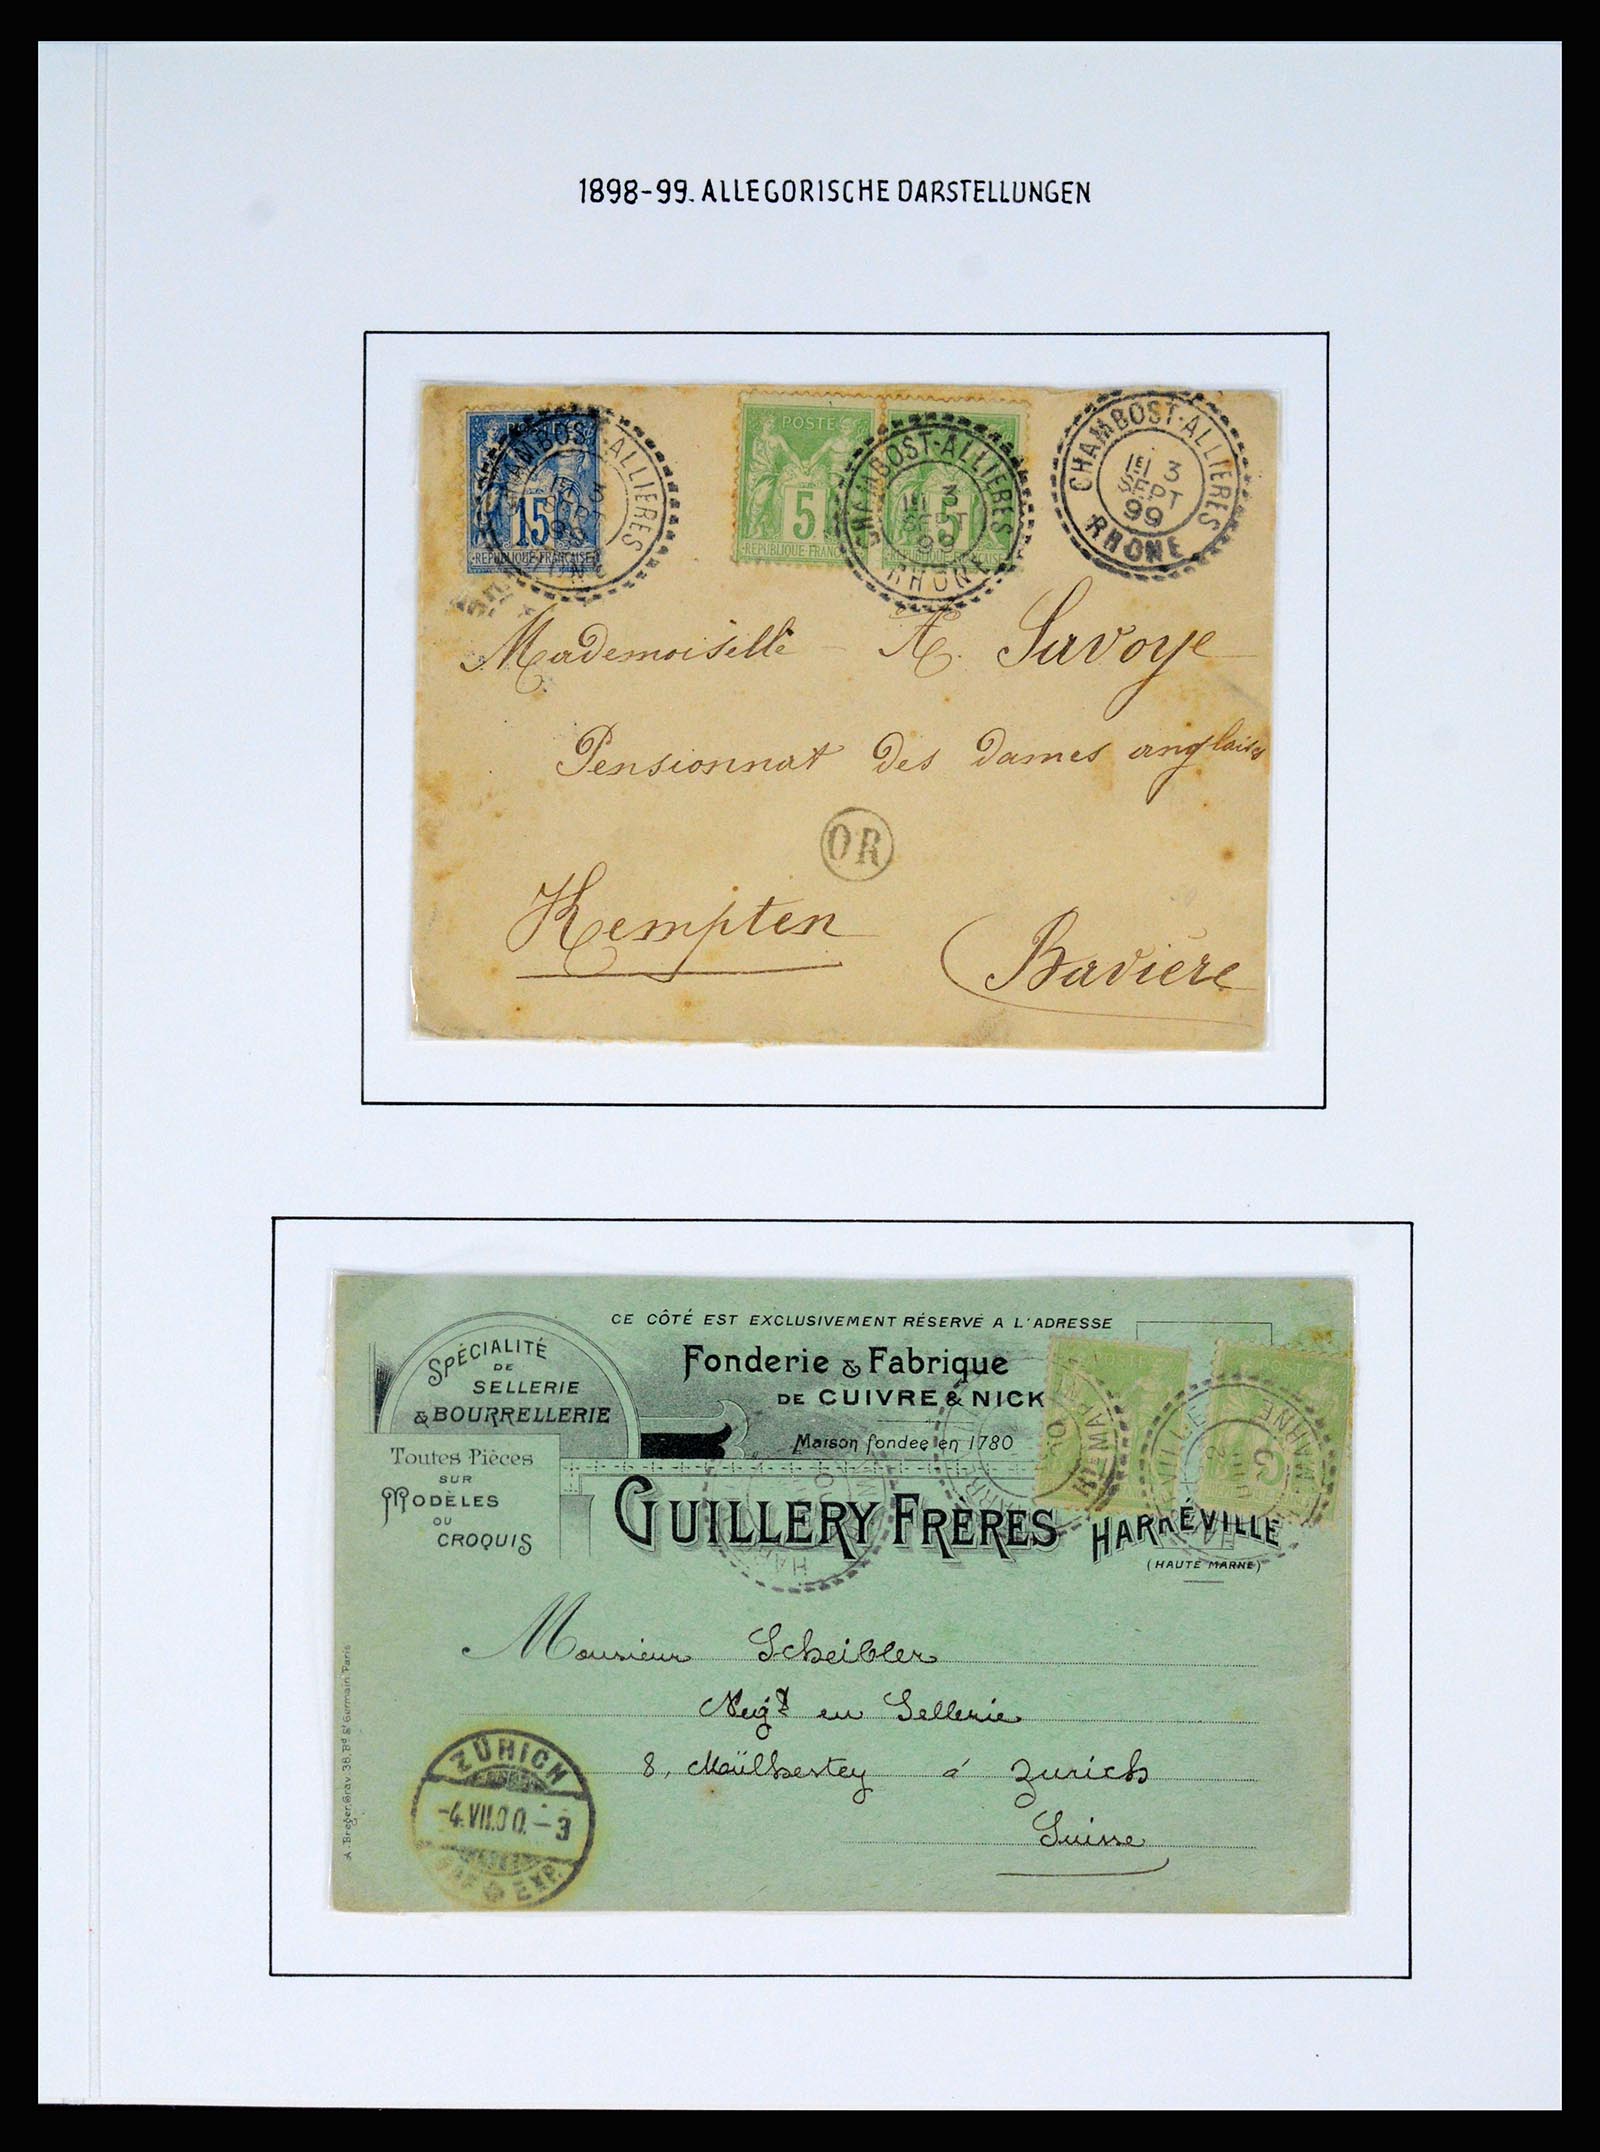 1898-99. ALLEGORISCHE DARSTELLUNGEN
POSTE
15
REPUBLIQUE FRANÇAISE
CHAMBOST-ALLIERES
3
SEPT
99
RHONE
POSTE
5
REPUBLIQUE FRANC
5
CHAMBOST-ALLIERES
3
SEPT
99
RHONE
CHAMBOST-ALLIERES
3
SEPT
99
RHONE
Mademoiselle A. Savoye
Pensionnat des Dames anglaises
OR
Kempten
Bavière
CE CÔTÉ EST EXCLUSIVEMENT RÉSERVÉ A L'ADRESSE
SPÉCIALITÉ
DE
SELLERIE
& BOURRELLERIE
Toutes Pièces
SUR
MODÈLES
OU
CROQUIS
Fonderie & Fabrique
DE CUIVRE & NICK
Maison fondée en 1780
GUILLERY FRÈRES HARRÉVILLE
(HAUTE MARNE)
Monsieur Scheibler
Negt en Sellerie
8, Maülbertey à Zurich
Suisse
ZÜRICH
-4.VII.00.-3
BRF EXP.
A. Breger, Grav. 38, Bd St Germain Paris